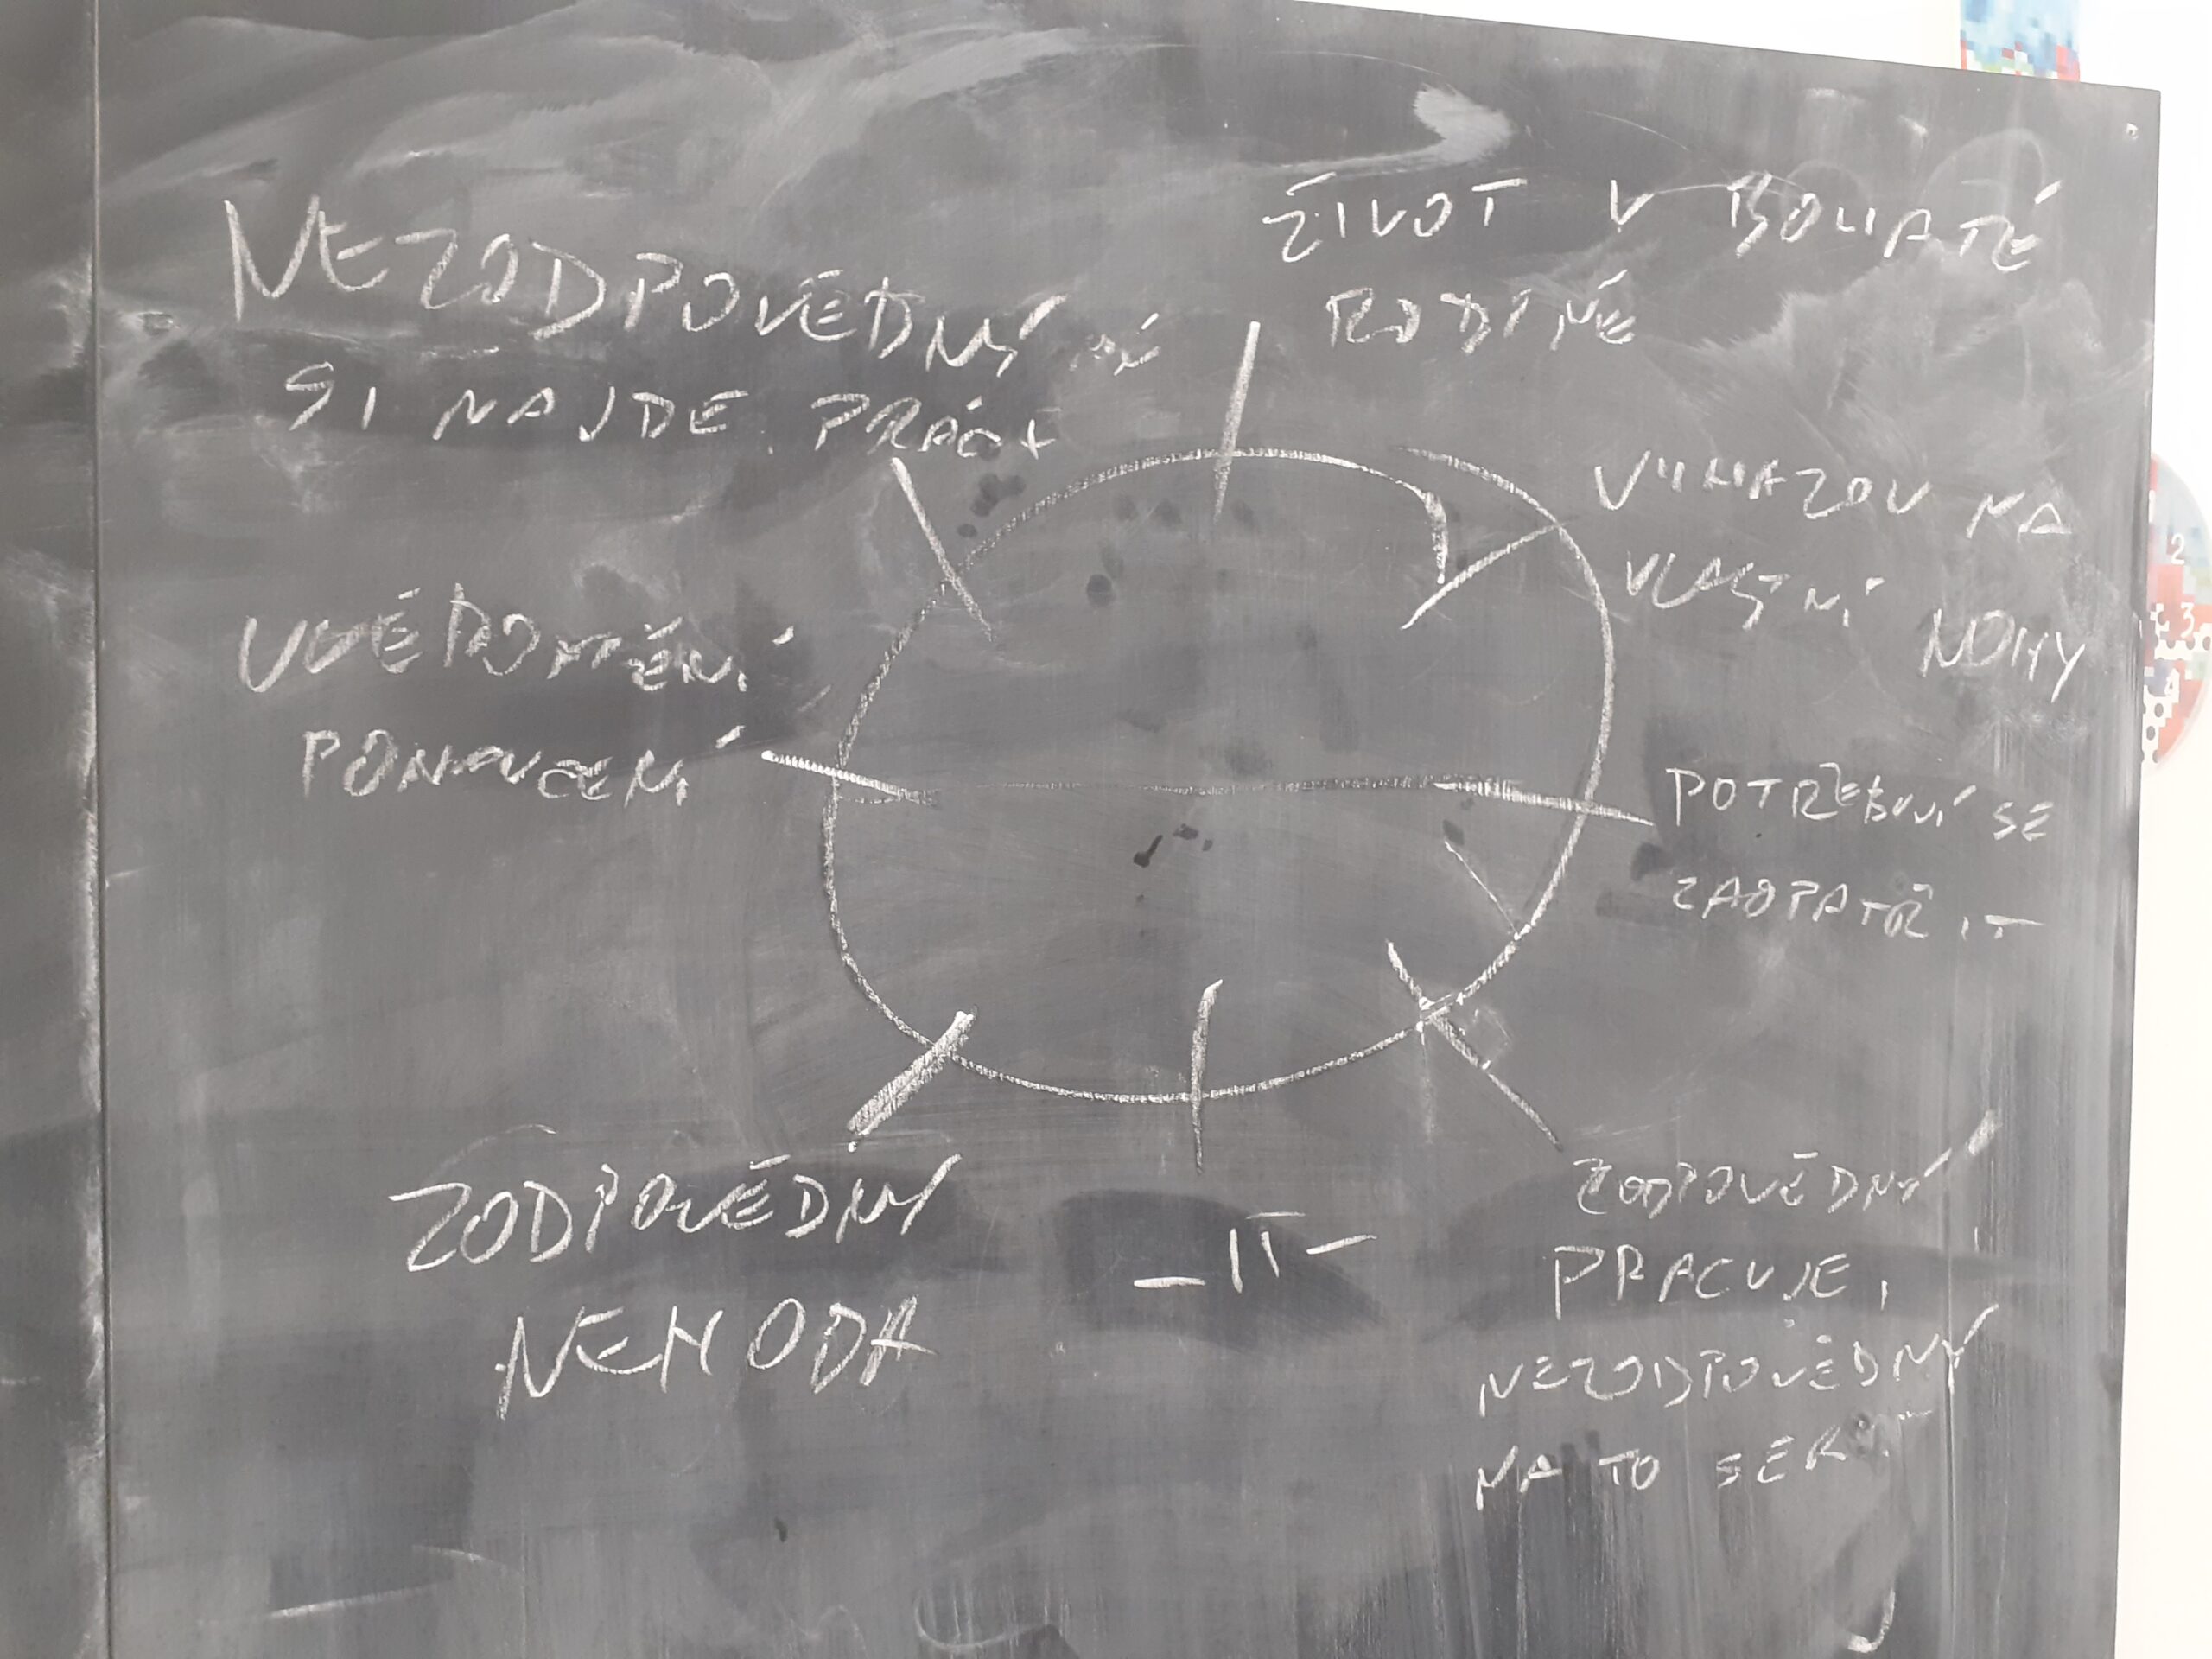 ŽIVOT V BOHATÉ
RODINĚ
VYHAZOV NA
VLASTNÍ NOHY
POTŘEBUJÍ SE
ZAOPATŘIT
ZODPOVĚDNÝ
PRACUJE,
NEZODPOVĚDNÝ
NA TO SERE
-11-
ZODPOVĚDNÝ
NEHODA
UVĚDOMĚNÍ
PONAUČENÍ
NEZODPOVĚDNÝ
SI NAJDE PRÁCI
2
3
4